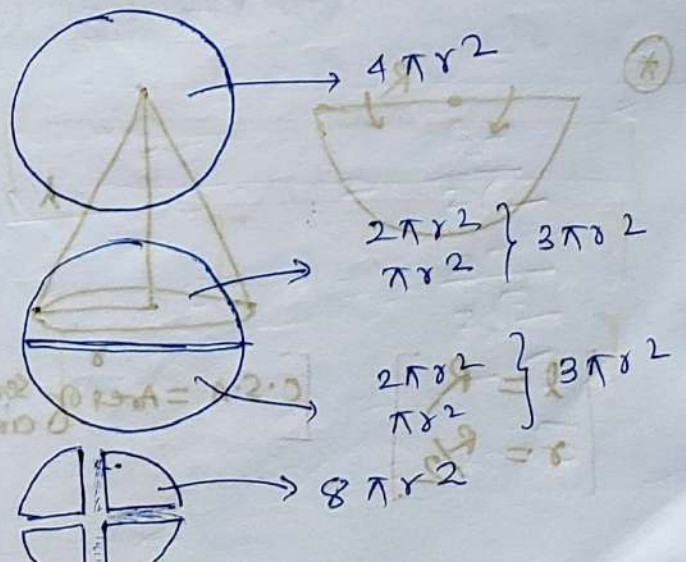 4πr²
2πr²
πr² } 3πr²
2πr²
πr² } 3πr²
8πr²